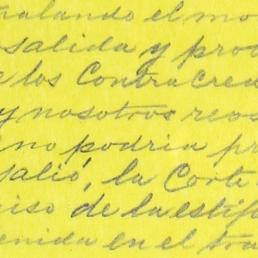 ñalando el mo
salida y proc
e los Contra crea
y nosotros reos
no podria pr
salió, la Corte
iso de la estip
enida en el tra